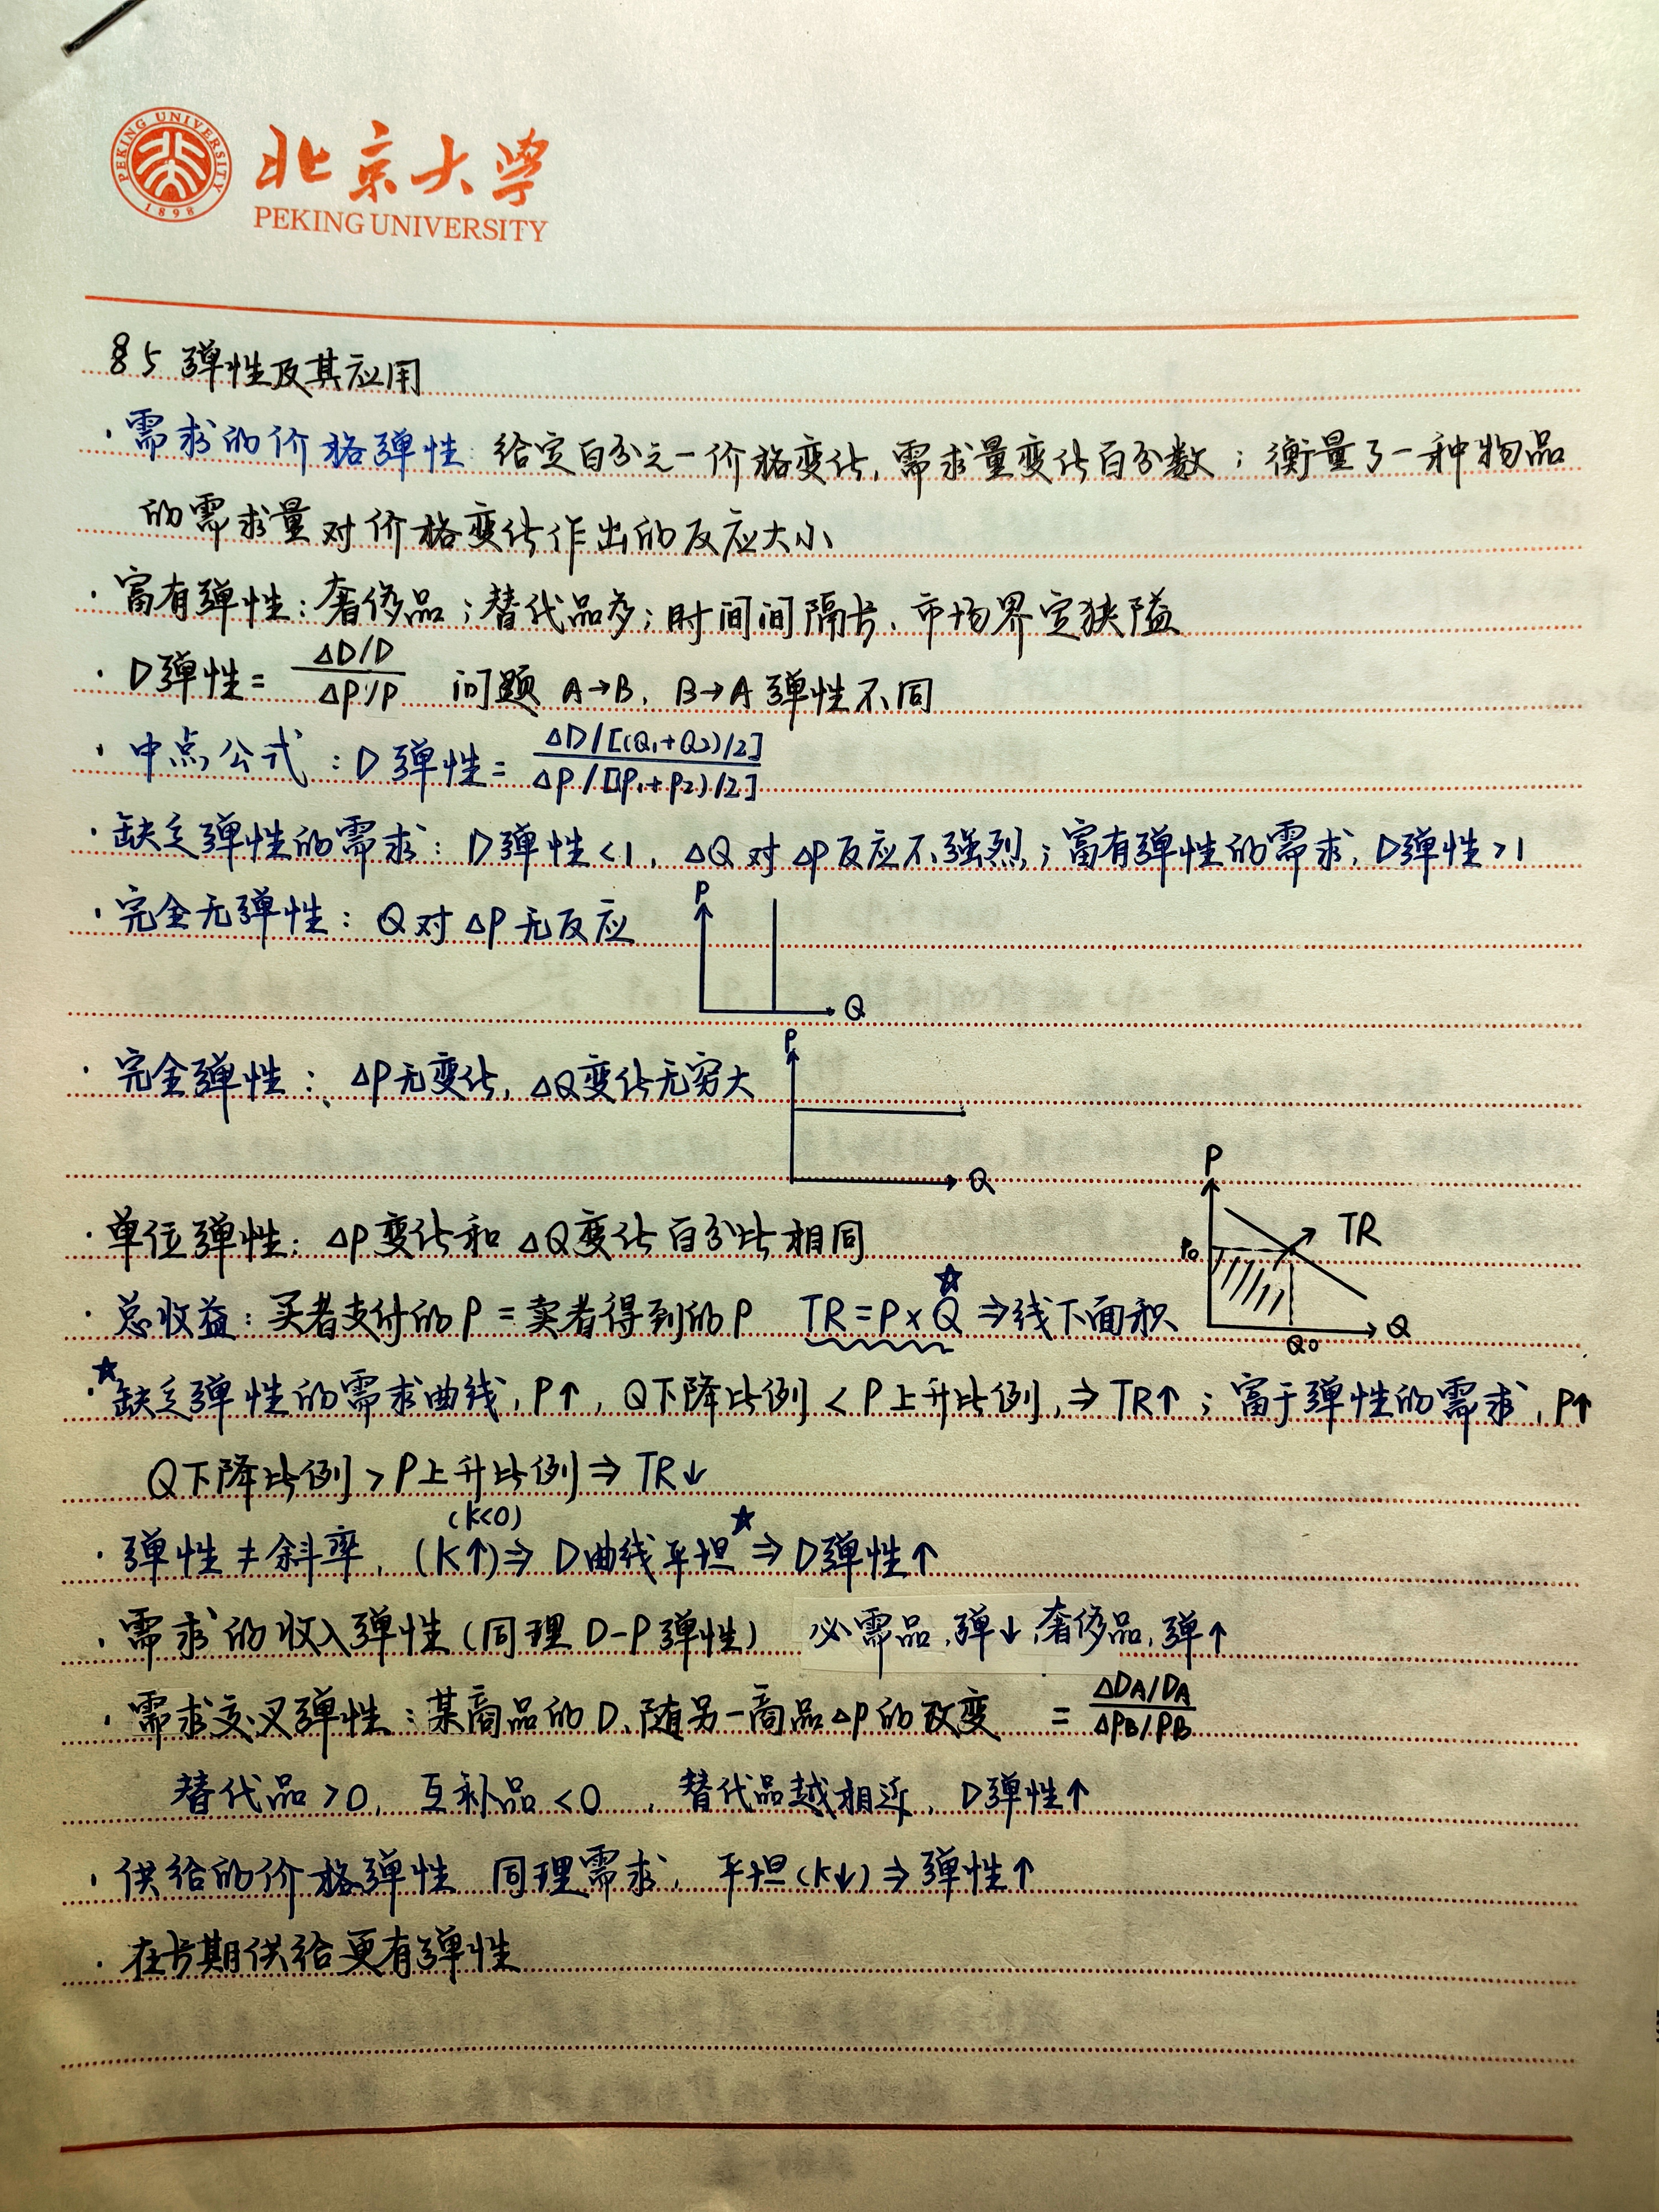 PEKING UNIVERSITY
1898
北京大学
PEKING UNIVERSITY
§5 弹性及其应用
· 需求的价格弹性: 给定百分之一价格变化, 需求量变化百分数; 衡量了一种物品
的需求量对价格变化作出的反应大小
· 富有弹性: 奢侈品; 替代品多; 时间间隔长、市场界定狭隘
· D弹性 = (ΔD/D)/(ΔP/P) 问题 A→B, B→A 弹性不同
· 中点公式: D弹性 = (ΔD/[(Q₁+Q₂)/2])/(ΔP/[(P₁+P₂)/2])
· 缺乏弹性的需求: D弹性<1, ΔQ对ΔP反应不强烈; 富有弹性的需求, D弹性>1
· 完全无弹性: Q对ΔP无反应
P
Q
· 完全弹性: ΔP无变化, ΔQ变化无穷大
P
Q
· 单位弹性: ΔP变化和ΔQ变化百分比相同
P
TR
P₀
Q₀
Q
· 总收益: 买者支付的P = 卖者得到的P TR=P×Q☆ ⇒线下面积
·☆缺乏弹性的需求曲线, P↑, Q下降比例 < P上升比例, ⇒ TR↑; 富于弹性的需求, P↑
Q下降比例 > P上升比例 ⇒ TR↓
(K<0)
· 弹性≠斜率, (K↑)⇒ D曲线平坦☆ ⇒ D弹性↑
· 需求的收入弹性 (同理 D-P弹性) 必需品, 弹↓, 奢侈品, 弹↑
· 需求交叉弹性: 某商品的D、随另一商品ΔP的改变 = (ΔDA/DA)/(ΔPB/PB)
替代品>0, 互补品<0, 替代品越相近, D弹性↑
· 供给的价格弹性 同理需求, 平坦(K↓)⇒弹性↑
· 在长期供给更有弹性